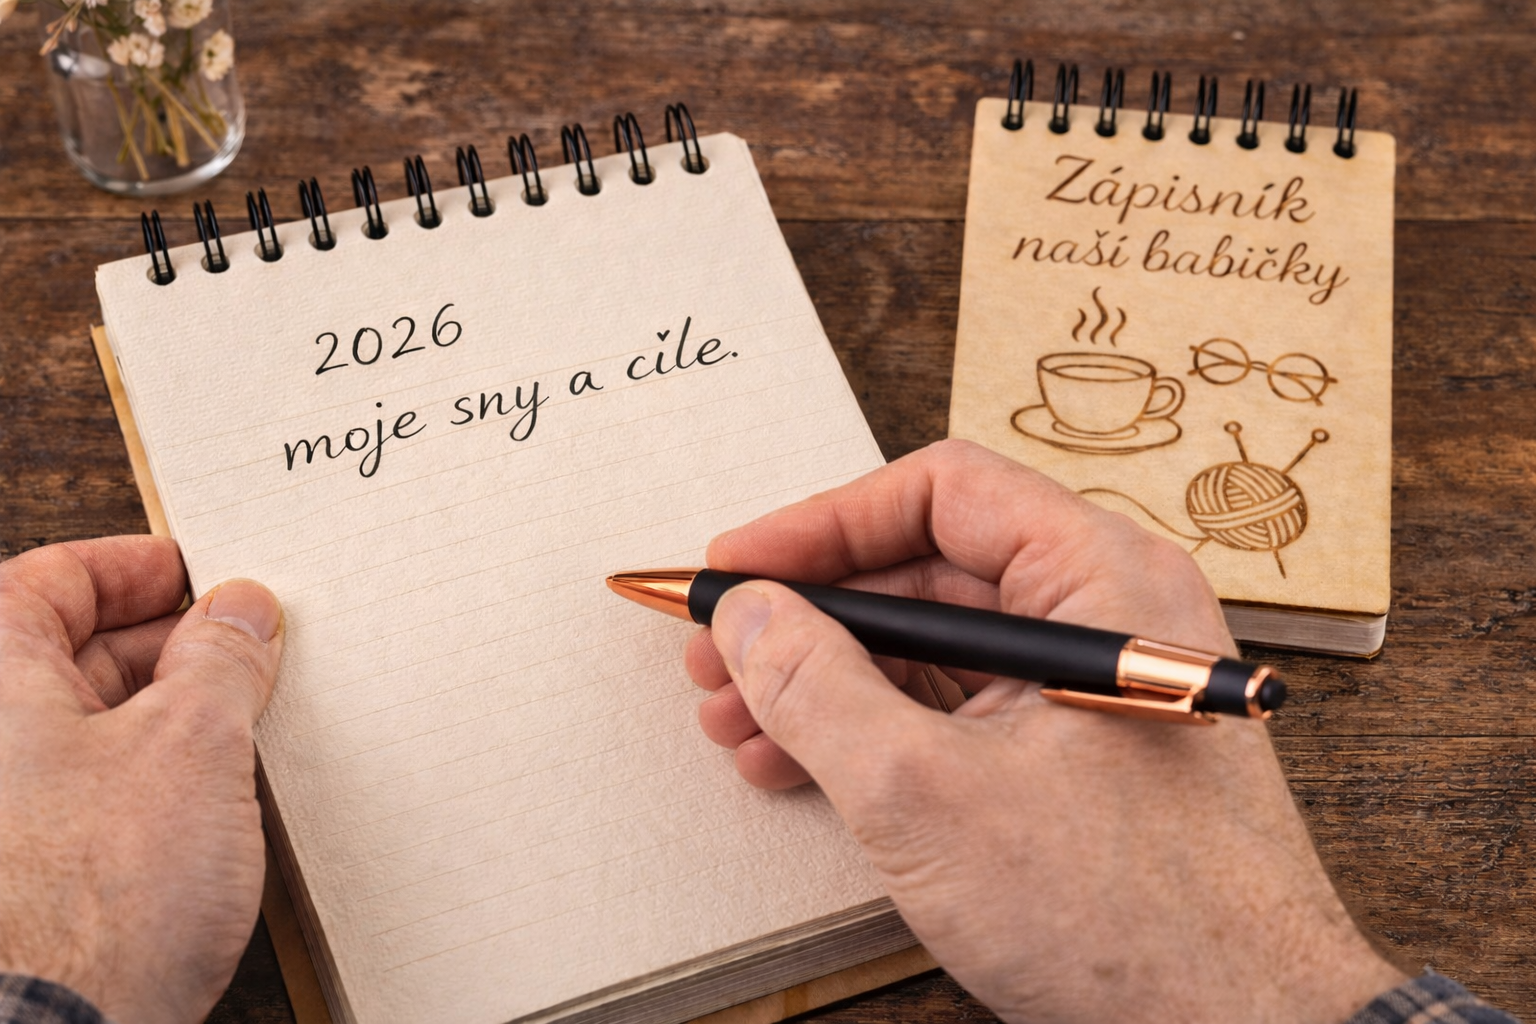 2026
moje sny a cǐle.
Zápisník
naší babičky